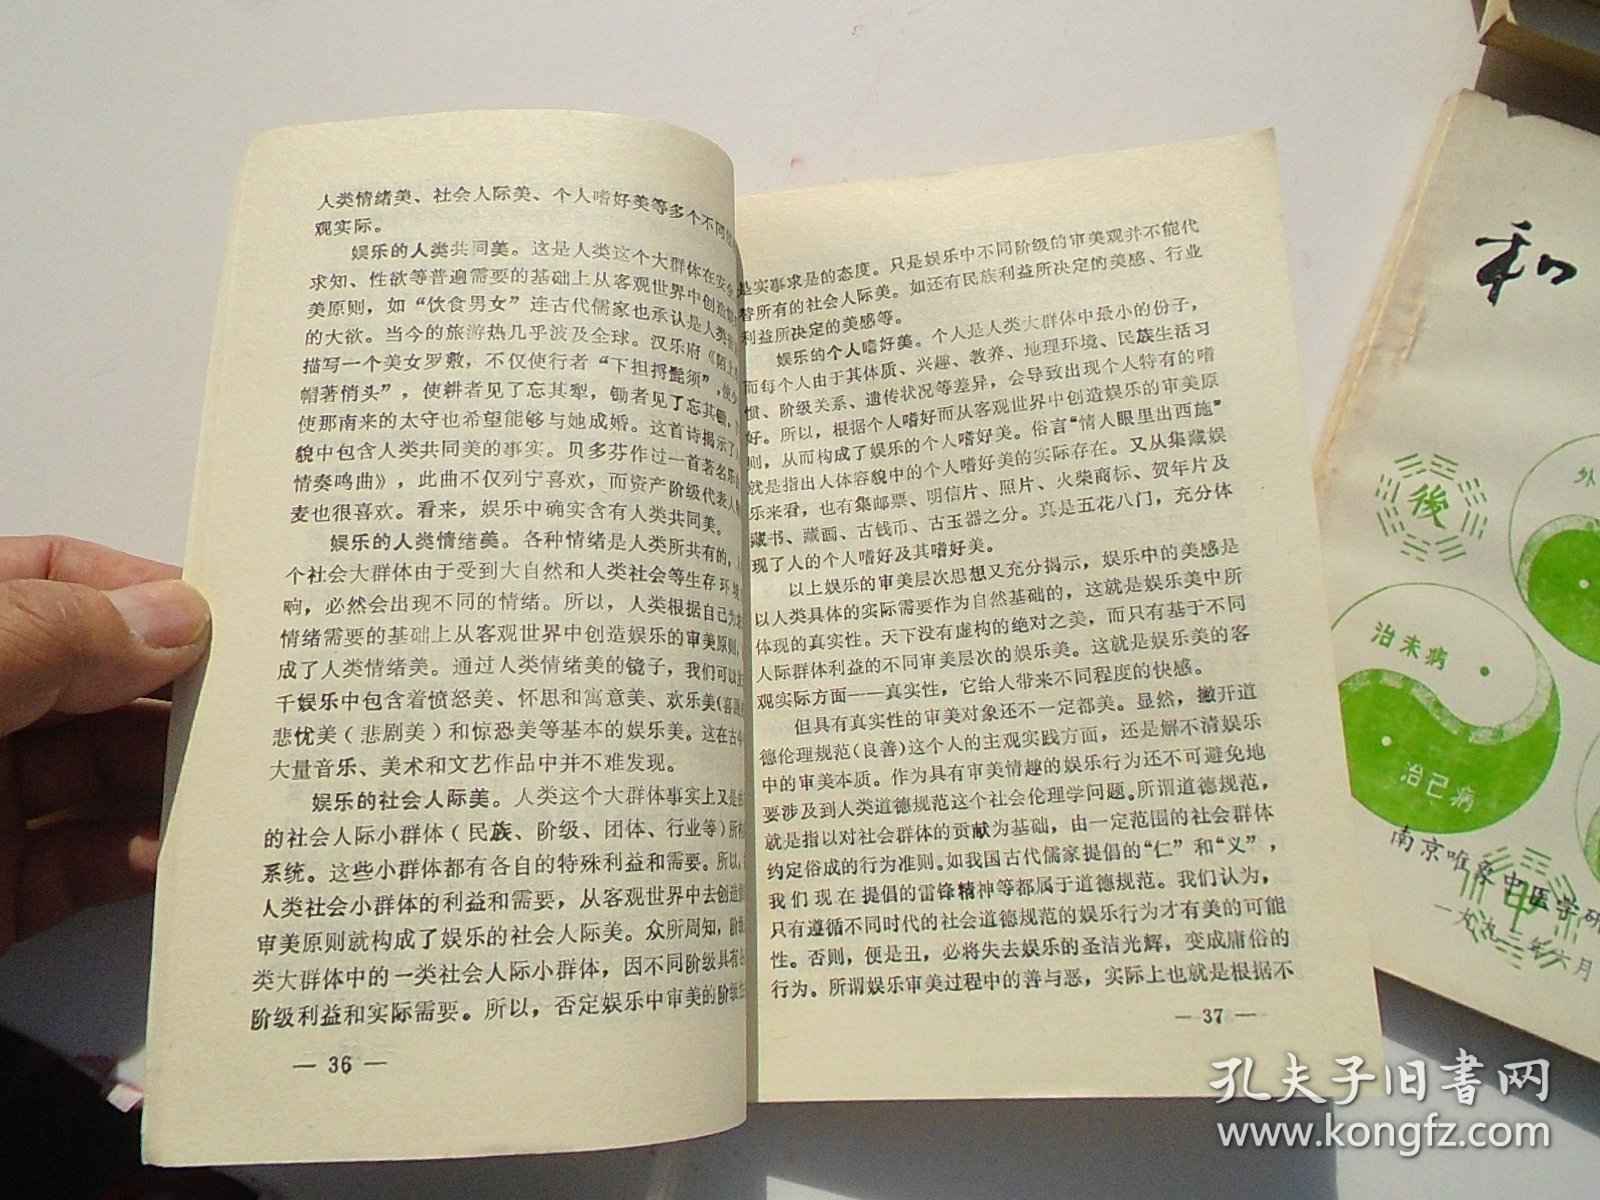 人类情绪美、社会人际美、个人嗜好美等多个不同
观实际。
娱乐的人类共同美。这是人类这个大群体在安全
求知、性欲等普遍需要的基础上从客观世界中创造
美原则，如“饮食男女”连古代儒家也承认是人类
的大欲。当今的旅游热几乎波及全球。汉乐府《陌上
描写一个美女罗敷，不仅使行者“下担捋髭须”，使少
帽著悄头”，使耕者见了忘其犁，锄者见了忘其锄，
使那南来的太守也希望能够与她成婚。这首诗揭示了
貌中包含人类共同美的事实。贝多芬作过一首著名
情奏鸣曲》，此曲不仅列宁喜欢，而资产阶级代表人
麦也很喜欢。看来，娱乐中确实含有人类共同美。
娱乐的人类情绪美。各种情绪是人类所共有的，
个社会大群体由于受到大自然和人类社会等生存环境
响，必然会出现不同的情绪。所以，人类根据自己为
情绪需要的基础上从客观世界中创造娱乐的审美原则，
成了人类情绪美。通过人类情绪美的镜子，我们可以
千娱乐中包含着愤怒美、怀思和寓意美、欢乐美（喜
悲忧美（悲剧美）和惊恐美等基本的娱乐美。这在古
大量音乐、美术和文艺作品中并不难发现。
娱乐的社会人际美。人类这个大群体事实上又是
的社会人际小群体（民族、阶级、团体、行业等）所
系统。这些小群体都有各自的特殊利益和需要。所以，
人类社会小群体的利益和需要，从客观世界中去创造
审美原则就构成了娱乐的社会人际美。众所周知，阶
类大群体中的一类社会人际小群体，因不同阶级具有
阶级利益和实际需要。所以，否定娱乐中审美的阶级
— 36 —
是实事求是的态度。只是娱乐中不同阶级的审美观并不能代
替所有的社会人际美。如还有民族利益所决定的美感、行业
利益所决定的美感等。
娱乐的个人嗜好美。个人是人类大群体中最小的份子，
而每个人由于其体质、兴趣、教养、地理环境、民族生活习
惯、阶级关系、遗传状况等差异，会导致出现个人特有的嗜
好。所以，根据个人嗜好而从客观世界中创造娱乐的审美原
则，从而构成了娱乐的个人嗜好美。俗言“情人眼里出西施”
就是指出人体容貌中的个人嗜好美的实际存在。又从集藏娱
乐来看，也有集邮票、明信片、照片、火柴商标、贺年片及
藏书、藏画、古钱币、古玉器之分。真是五花八门，充分体
现了人的个人嗜好及其嗜好美。
以上娱乐的审美层次思想又充分揭示，娱乐中的美感是
以人类具体的实际需要作为自然基础的，这就是娱乐美中所
体现的真实性。天下没有虚构的绝对之美，而只有基于不同
人际群体利益的不同审美层次的娱乐美。这就是娱乐美的客
观实际方面——真实性，它给人带来不同程度的快感。
但具有真实性的审美对象还不一定都美。显然，撇开道
德伦理规范（良善）这个人的主观实践方面，还是解不清娱乐
中的审美本质。作为具有审美情趣的娱乐行为还不可避免地
要涉及到人类道德规范这个社会伦理学问题。所谓道德规范，
就是指以对社会群体的贡献为基础，由一定范围的社会群体
约定俗成的行为准则。如我国古代儒家提倡的“仁”和“义”，
我们现在提倡的雷锋精神等都属于道德规范。我们认为，
只有遵循不同时代的社会道德规范的娱乐行为才有美的可能
性。否则，便是丑，必将失去娱乐的圣洁光辉，变成庸俗的
行为。所谓娱乐审美过程中的善与恶，实际上也就是根据不
— 37 —
和
外
後
治未病
治已病
南京唯象中医学研
一九九二年六月
中
孔夫子旧書网
www.kongfz.com